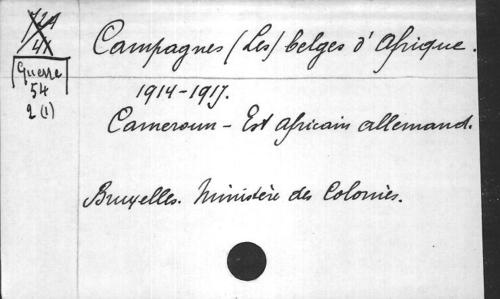 Campagnes (Les) belges d'Afrique.
Guerre
54
2 (1)
1914-1917.
Cameroun - Est africain allemand.
Bruxelles. Ministère des Colonies.